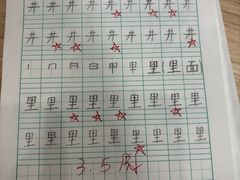 井 井 井 井 井 井 井 井
井 井 井 井 井 井 井 井
丨 冂 日 甲 甲 里 (里 面)
里 里 里 里 里 里 里 里
里 里 里 里 里 里 里 里
3.5